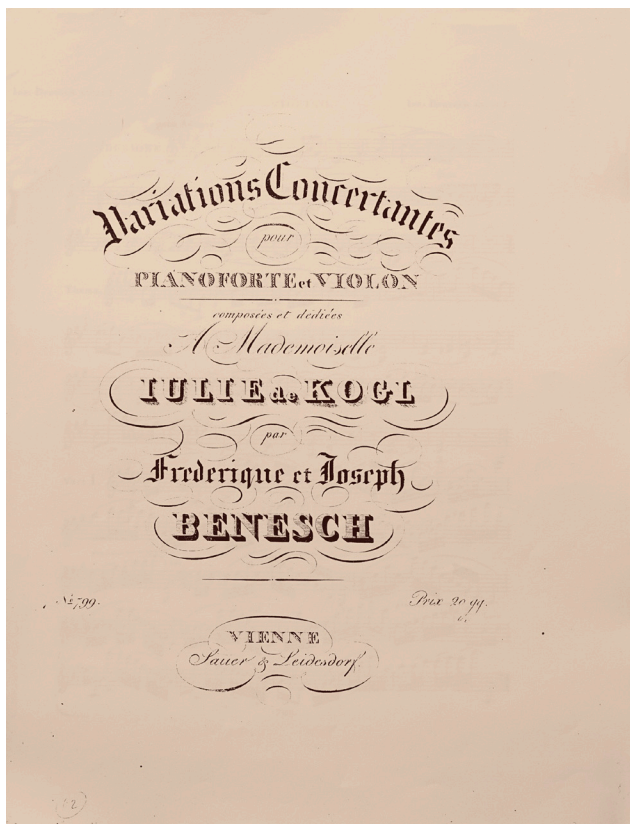 Variations Concertantes
pour
PIANOFORTE et VIOLON
composées et dédiées
A Mademoiselle
IULIE de KOGL
par
Frederique et Joseph
BENESCH
No 799.
Prix 20 gg.
VIENNE
Sauer & Leidesdorf.